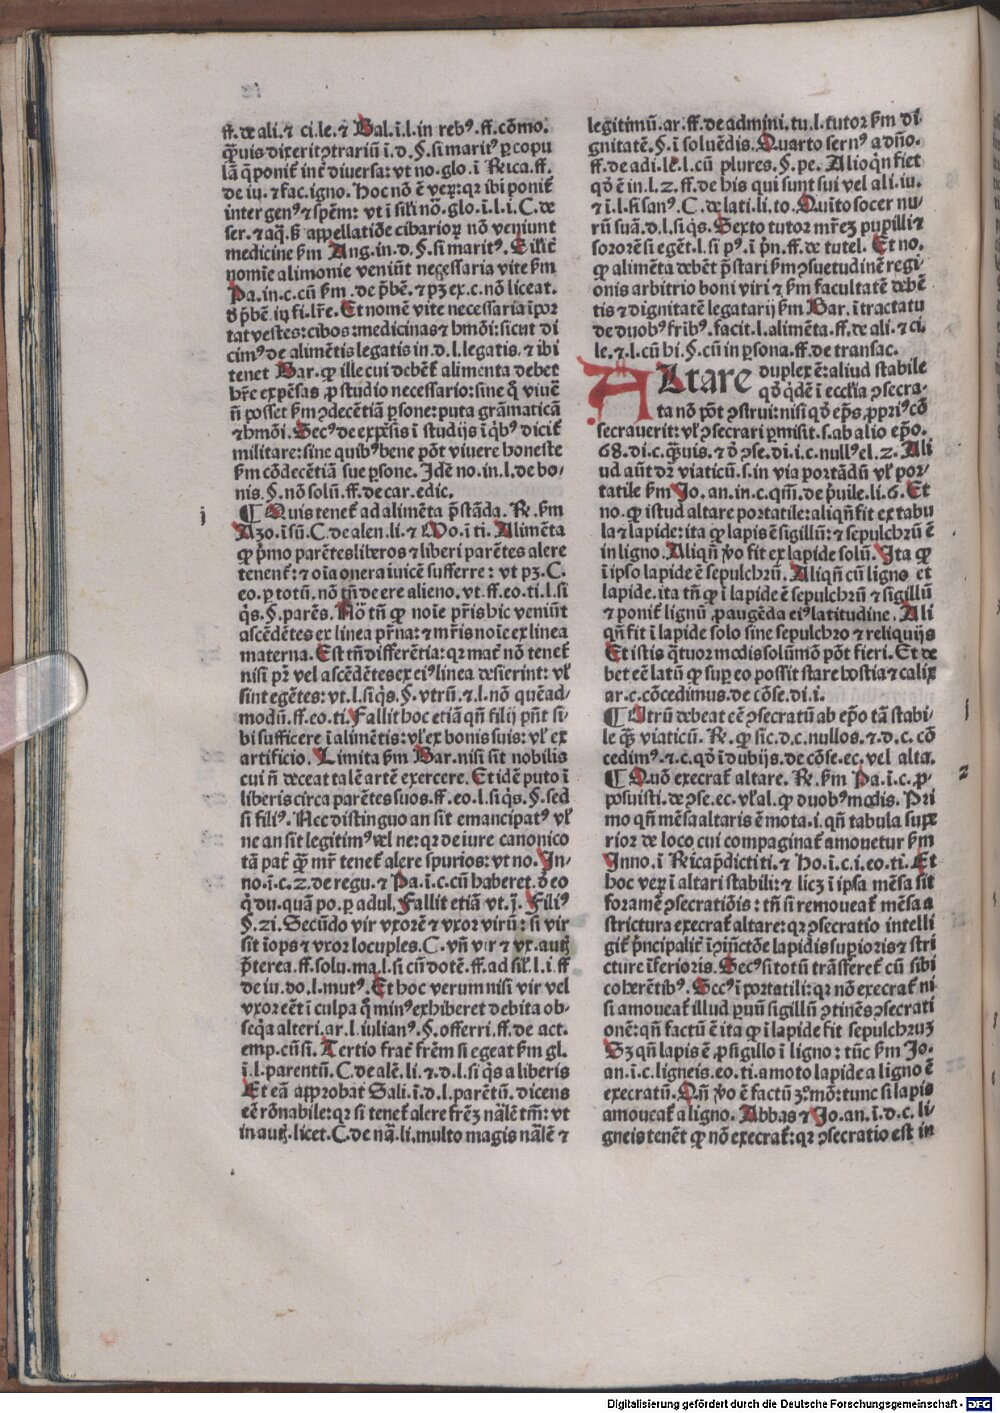 ff. de ali. ⁊ ci. le. ⁊ Bal. ī. l. in rebꝰ. ff. cōmo.
q̄uis dixerit ꝯtrariū ī. d. §. si maritꝰ ꝑ copu
lā q̄ ponit̄ int̄ diuersa: vt no. glo. ī Rͥca. ff.
de iu. ⁊ fac. igno. Hoc nō ē veꝝ: qꝛ ibi ponit̄
inter genꝰ ⁊ spēm: vt ī sili nō. glo. ī. l. i. C. de
ser. ⁊ aq̄. s̄ appellatiōe cibarioꝝ nō veniunt
medicine s̄m Ang. in. d. §. si maritꝰ. Silit̄
nomīe alimonie veniūt necessaria vite s̄m
Pa. in. c. cū s̄m. de p̄bē. ⁊ pꝫ ex. c. nō liceat.
d̄ p̄bē. iꝗ fi. lr̄e. Et nomē vite necessaria īpor
tat vestes: cibos: medicinas ⁊ hmōi: sicut di
cimꝰ de alimētis legatis in. d. l. legatis. ⁊ ibi
tenet Bar. ꝙ ille cui dēbet̄ alimenta debet
hr̄e expēsas ꝓ studio necessario: sine q̄ viuē
n̄ posset s̄m ꝯdecētiā ꝑsone: puta grāmaticā
⁊ hmōi. Secꝰ de expēsis ī studijs ī q̄bꝰ dicit̄
militare: sine quibꝰ bene pōt viuere honeste
s̄m cōdecētiā sue ꝑsone. Idē no. in. l. de bo-
nis. §. nō solū. ff. de car. edic.
¶ Quis tenet̄ ad alimēta p̄stāda. R̄. s̄m
Azo. ī sū. C. de alen. li. ⁊ Mo. ī ti. Alimēta
ꝙ p̄mo parētes liberos ⁊ liberi parētes alere
tenent̄: ⁊ oīa onera īuicē sufferre: vt pꝫ. C.
eo. ꝑ totū. nō tn̄ de ere alieno. vt. ff. eo. ti. l. si
q̄s. §. parēs. Nō tn̄ ꝙ noīe pr̄is hic veniūt
ascēdētes ex linea pr̄na: ⁊ mr̄is noīe ex linea
materna. Est tn̄ differētia: qꝛ mat̄ nō tenet̄
nisi pr̄ vel ascēdētes ex eiꝰ linea desierint: vl̄
sint egētes: vt. l. si q̄s. §. vtrū. ⁊. l. nō quēad-
modū. ff. eo. ti. Fallit hoc etiā qn̄ filij pn̄t si-
bi sufficere ī alimētis: vl̄ ex bonis suis: vl̄ ex
artificio. Limita s̄m Bar. nisi sit nobilis
cui n̄ deceat talē artē exercere. Et idē puto ī
liberis circa parētes suos. ff. eo. l. si q̄s. §. sed
si filiꝰ. Nec distinguo an sit emancipatꝰ vl̄
ne an sit legitimꝰ vel ne: qꝛ de iure canonico
tā pat̄ q̄ mr̄ tenet̄ alere spurios: vt no. In-
no. ī. c. 2. de regu. ⁊ Pa. ī. c. cū haberet. d̄ eo
q̄ du. quā po. ꝑ adul. Fallit etiā vt. j. Filiꝰ
§. 21. Secūdo vir vxorē ⁊ vxor virū: si vir
sit īops ⁊ vxor locuples. C. vn̄ vir ⁊ vx. autē
p̄terea. ff. solu. ma. l. si cū dotē. ff. ad sil̄. l. i. ff
de iu. do. l. mutꝰ. Et hoc verum nisi vir vel
vxor eēt ī culpa q̄ minꝰ exhiberet debita ob-
seq̄a alteri. ar. l. iulianꝰ. §. offerri. ff. de act.
emp. cū si. Tertio frat̄ frēm si egeat s̄m gl.
ī. l. parentū. C. de alē. li. ⁊. d. l. si q̄s a liberis
Et eā approbat Sali. ī. d. l. parētū. dicens
eē rōnabile: qꝛ si tenet̄ alere frēꝫ nālē tm̄: vt
in autꝫ. licet. C. de nā. li. multo magis nālē ⁊
legitimū. ar. ff. de admini. tu. l. tutor s̄m di
gnitatē. §. ī soluēdis. Quarto seruꝰ a dn̄o.
ff. de adi. le. l. cū plures. §. pe. Alioq̄n fiet
qd̄ ē in. l. 2. ff. de his qui sunt sui vel ali. iu.
⁊ ī. l. si sanꝰ. C. de lati. li. to. Quīto socer nu-
rū suā. d. l. si q̄s. Sexto tutor mr̄eꝫ pupilli ⁊
sororē si egēt. l. si pꝰ. ī pn̄. ff. de tutel. Et no.
ꝙ alimēta debēt p̄stari s̄m ꝯsuetudinē regi-
onis arbitrio boni viri ⁊ s̄m facultatē debē
tis ⁊ dignitatē legatarij s̄m Bar. ī tractatu
de duobꝰ fr̄ibꝰ. facit. l. alimēta. ff. de ali. ⁊ ci.
le. ⁊. l. cū hi. §. cū in ꝑsona. ff. de transac.
ALtare duplex ē: aliud stabile
qd̄ q̄dē ī ecclīa ꝯsecra-
ta nō pōt ꝯstrui: nisi qd̄ ep̄s ꝓpriꝰ cō
secrauerit: vl̄ ꝯsecrari ꝑmisit. s. ab alio ep̄o.
68. di. c. q̄uis. ⁊ d̄ ꝯse. di. ī. c. nullꝰ el. 2. Ali
ud aūt dr̄ viaticū. s. in via portādū vl̄ por-
tatile s̄m Jo. an. in. c. qm̄. de p̄uile. li. 6. Et
no. ꝙ istud altare portatile: aliqn̄ fit ex tabu
la ⁊ lapide: ita ꝙ lapis ē sigillū: ⁊ sepulchrū ē
in ligno. Aliqn̄ v̄o fit ex lapide solū. Ita ꝙ
ī ipso lapide ē sepulchrū. Aliqn̄ cū ligno et
lapide. ita tn̄ ꝙ ī lapide ē sepulchrū ⁊ sigillū
⁊ ponit̄ lignū ꝓ augēda eiꝰ latitudine. Ali
qn̄ fit ī lapide solo sine sepulchro ⁊ reliquijs
Et istis q̄tuor modis solūmō pōt fieri. Et de
bet eē latū ꝙ suꝑ eo possit stare hostia ⁊ calix
ar. c. cōcedimus. de cōse. di. i.
¶ Utrū debeat eē ꝯsecratū ab ep̄o tā stabi-
le q̄ꝫ viaticū. R̄. ꝙ sic. d. c. nullos. ⁊ d. c. cō
cedimꝰ. ⁊. c. qd̄ ī dubijs. de cōse. ec. vel alta.
¶ Quō execrat̄ altare. R̄. s̄m Pa. ī. c. ꝓ-
posuisti. de ꝯse. ec. vl̄ al. ꝙ duobꝰ modis. Pri
mo qn̄ mēsa altaris ē mota. i. qn̄ tabula supe
rior de loco cui compaginat̄ amouetur s̄m
Inno. ī Rͥca p̄dicti ti. ⁊ Ho. ī. c. i. eo. ti. Et
hoc veꝝ ī altari stabili: ⁊ licꝫ ī ipsa mēsa sit
foramē ꝯsecratiōis: tn̄ si remoueat̄ mēsa a
strictura execrat̄ altare: qꝛ ꝯsecratio intelli
git̄ p̄ncipalit̄ ī ꝯiūctōe lapidis suꝑioris ⁊ stri
cture īferioris. Secꝰ si totū trāsferet̄ cū sibi
coherētibꝰ. Secꝰ ī portatili: qꝛ nō execrat̄ ni
si amoueat̄ illud ꝑuū sigillū ꝯtinēs ꝯsecrati
onē: qn̄ factū ē ita ꝙ ī lapide fit sepulchruꝫ
Sꝫ qn̄ lapis ē ꝓ sigillo ī ligno: tūc s̄m Jo.
an. ī. c. ligneis. eo. ti. amoto lapide a ligno ē
execratū. Qn̄ v̄o ē factū 3º. mō: tunc si lapis
amoueat̄ a ligno. Abbas ⁊ Jo. an. ī. d. c. li-
gneis tenēt ꝙ nō execrat̄: qꝛ ꝯsecratio est in
j
1
2
Digitalisierung gefördert durch die Deutsche Forschungsgemeinschaft - DFG